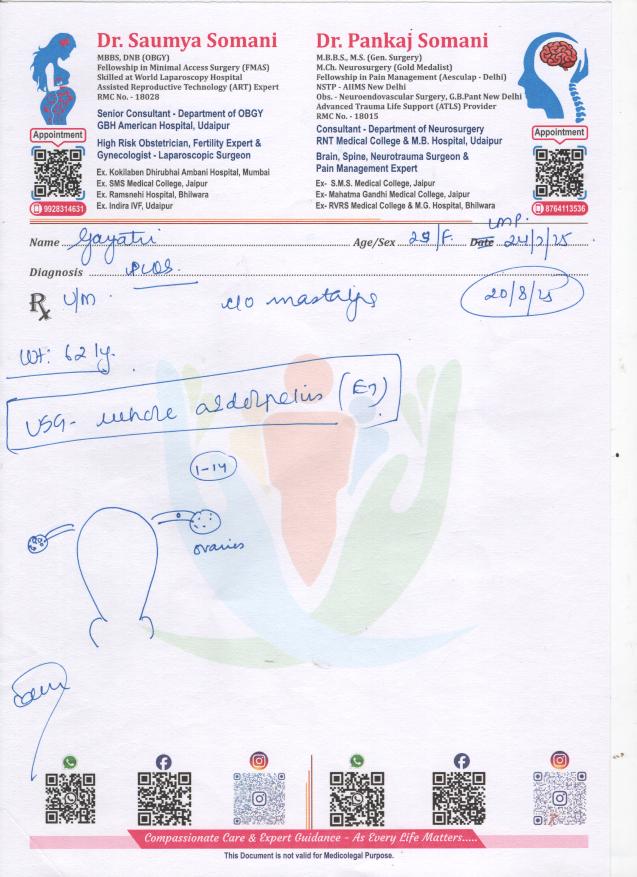 Dr. Saumya Somani
MBBS, DNB (OBGY)
Fellowship in Minimal Access Surgery (FMAS)
Skilled at World Laparoscopy Hospital
Assisted Reproductive Technology (ART) Expert
RMC No. - 18028
Senior Consultant - Department of OBGY
GBH American Hospital, Udaipur
High Risk Obstetrician, Fertility Expert &
Gynecologist - Laparoscopic Surgeon
Ex. Kokilaben Dhirubhai Ambani Hospital, Mumbai
Ex. SMS Medical College, Jaipur
Ex. Ramsnehi Hospital, Bhilwara
Ex. Indira IVF, Udaipur
Appointment
9928314631
Dr. Pankaj Somani
M.B.B.S., M.S. (Gen. Surgery)
M.Ch. Neurosurgery (Gold Medalist)
Fellowship in Pain Management (Aesculap - Delhi)
NSTP - AIIMS New Delhi
Obs. - Neuroendovascular Surgery, G.B.Pant New Delhi
Advanced Trauma Life Support (ATLS) Provider
RMC No. - 18015
Consultant - Department of Neurosurgery
RNT Medical College & M.B. Hospital, Udaipur
Brain, Spine, Neurotrauma Surgeon &
Pain Management Expert
Ex- S.M.S. Medical College, Jaipur
Ex- Mahatma Gandhi Medical College, Jaipur
Ex- RVRS Medical College & M.G. Hospital, Bhilwara
Appointment
8764113536
LMP.
Name Gayatri Age/Sex 29/F. Date 24/7/25
Diagnosis PCOS.
Rx U/M c/o 20/8/25
Wt: 62
USG- whole
1-14
ovaries
Compassionate Care & Expert Guidance - As Every Life Matters.....
This Document is not valid for Medicolegal Purpose.